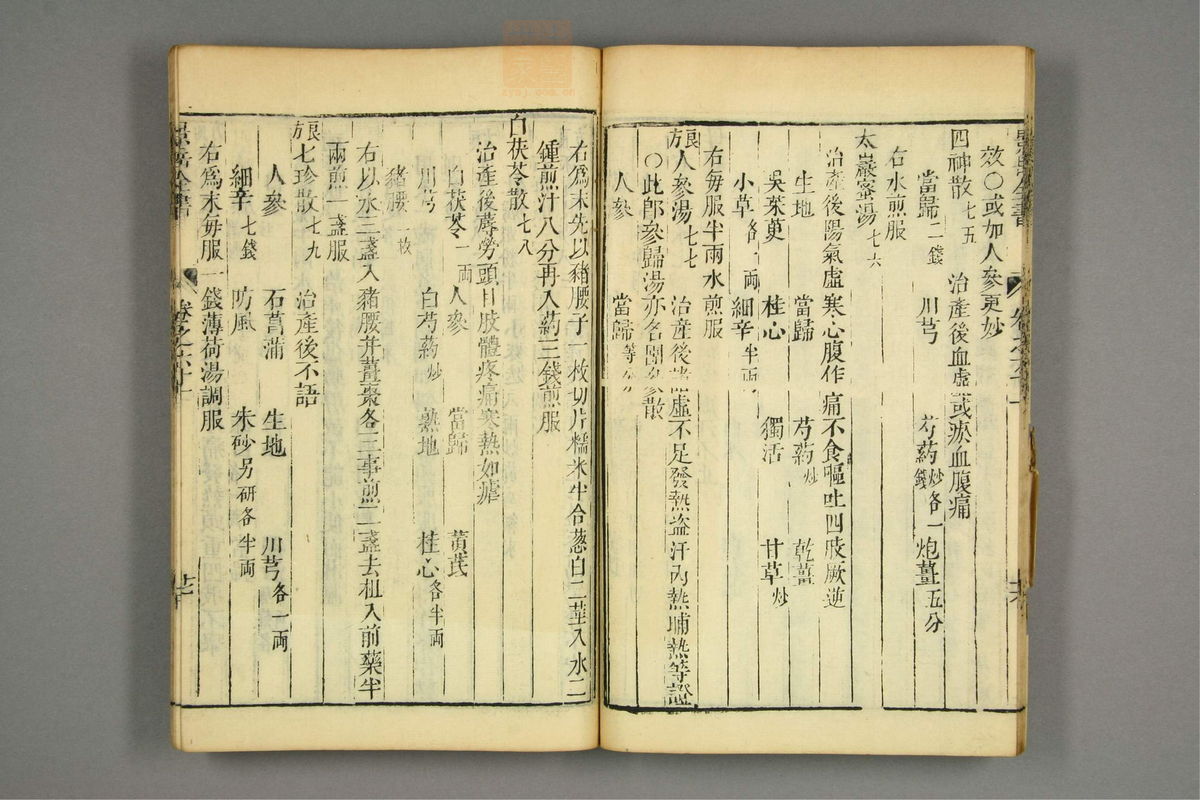 效○或加人參更妙
四神散七五 治產後血虛或瘀血腹痛
當歸二錢 川芎 芍藥炒各一錢 炮薑五分
右水煎服
太巖蜜湯七六
治產後陽氣虛寒心腹作痛不食嘔吐四肢厥逆
生地 當歸 芍藥炒 乾薑
吳茱萸 桂心 獨活 甘草炒
小草各一兩 細辛半兩
右每服半兩水煎服
良方人參湯七七 治產後諸虛不足發熱盜汗內熱晡熱等證
○此即參歸湯亦名團參散
人參 當歸等分
右為末先以豬腰子一枚切片糯米半合葱白二莖入水二
鍾煎汁八分再入藥三錢煎服
白茯苓散七八
治產後蓐勞頭目肢體疼痛寒熱如瘧
白茯苓一兩 人參 當歸 黃芪
川芎 白芍藥炒 熟地 桂心各半兩
豬腰一枚
右以水三盞入豬腰并薑棗各三事煎二盞去柤入前藥半
兩煎一盞服
良方七珍散七九 治產後不語
人參 石菖蒲 生地 川芎各一兩
細辛七錢 防風 朱砂另研各半兩
右為末每服一錢薄荷湯調服
景岳全書
卷之六十一